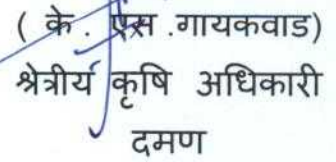 ( के . एस .गायकवाड)
श्रेत्रीर्य कृषि अधिकारी
दमण